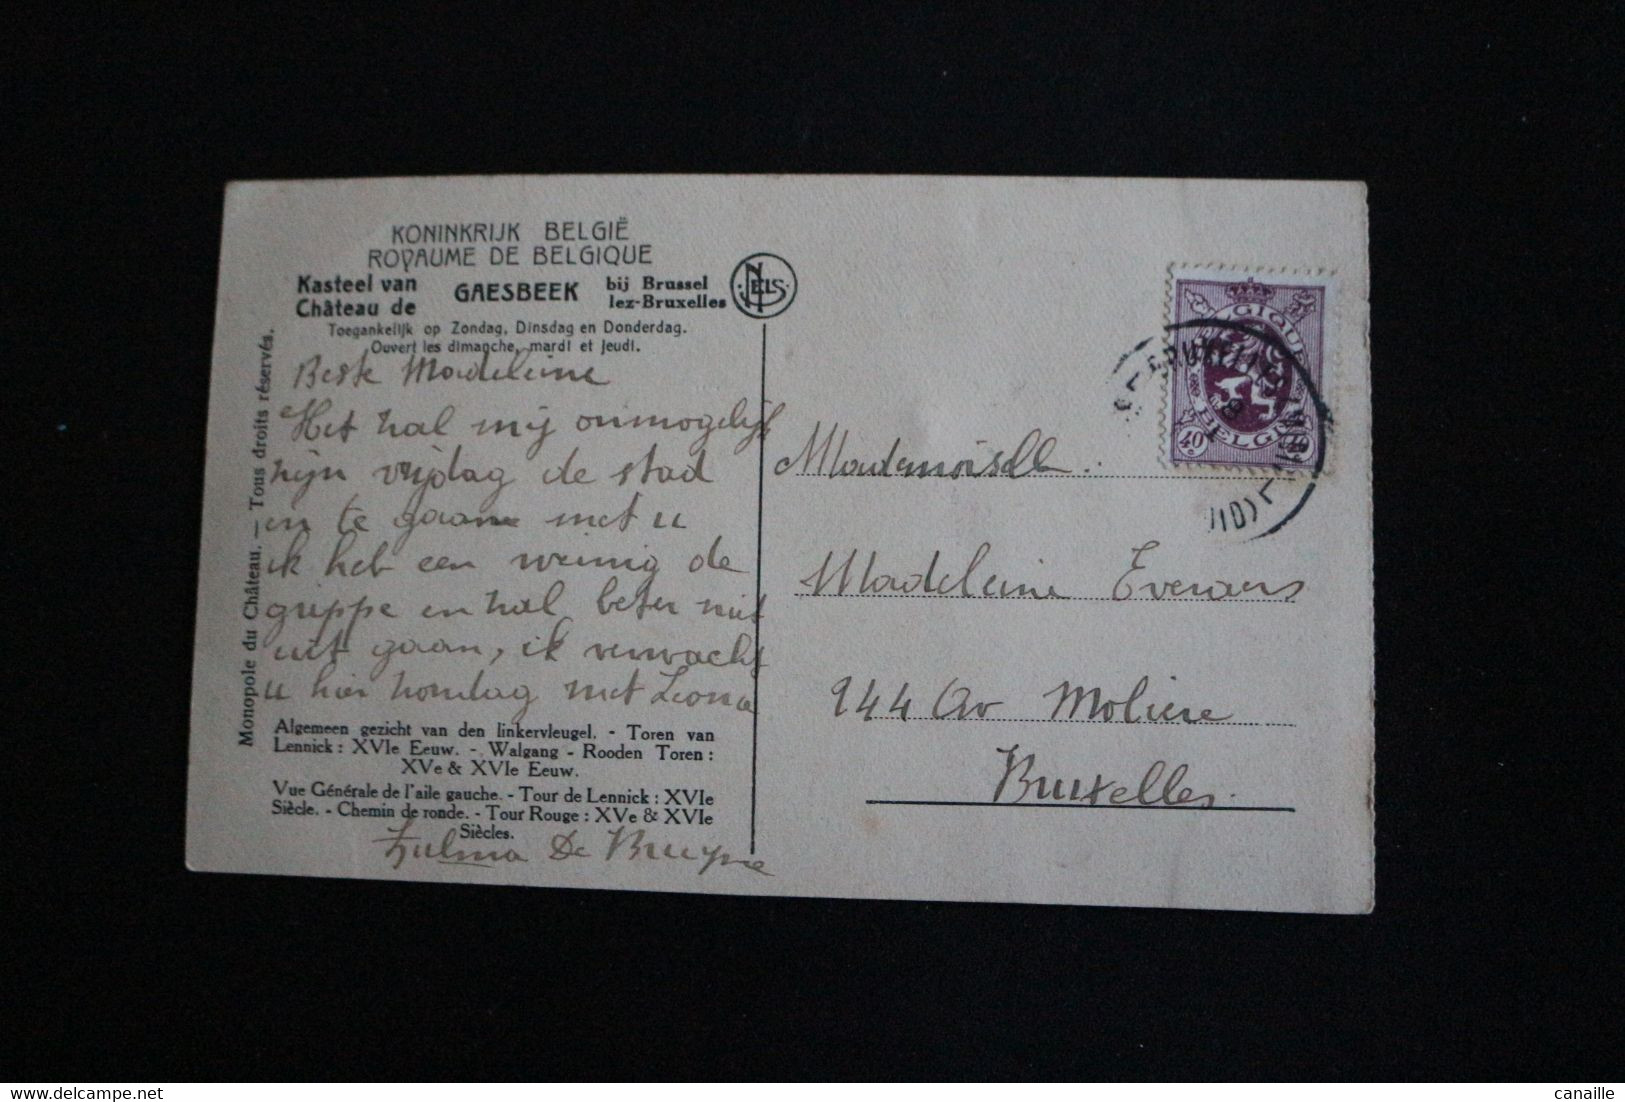 KONINKRIJK BELGIË
ROYAUME DE BELGIQUE
Kasteel van GAESBEEK bij Brussel
Château de lez-Bruxelles
NELS
Toegankelijk op Zondag, Dinsdag en Donderdag.
Ouvert les dimanche, mardi et jeudi.
Monopole du Château. — Tous droits réservés.
Beste Madeleine
Het zal mij onmogelijk
zijn vrijdag de stad
in te gaan met u
ik heb een weinig de
grippe en zal beter niet
uit gaan, ik verwacht
u hier zondag met Leona
Algemeen gezicht van den linkervleugel. - Toren van
Lennick : XVIe Eeuw. - Walgang - Rooden Toren :
XVe & XVIe Eeuw.
Vue Générale de l'aile gauche. - Tour de Lennick : XVIe
Siècle. - Chemin de ronde. - Tour Rouge : XVe & XVIe
Siècles.
Zulma De Bruyne
BELGIQUE
BELGIË
40c 40c
BRUXELLES
8
Mademoiselle
Madeleine Everaers
244 Av Molière
Bruxelles.
canaille